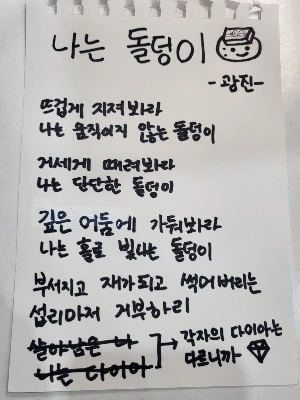 나는 돌덩이
-광진-
뜨겁게 지져봐라
나는 움직이지 않는 돌덩이
거세게 때려봐라
나는 단단한 돌덩이
깊은 어둠에 가둬봐라
나는 홀로 빛나는 돌덩이
부서지고 재가되고 썩어버리는
섭리마저 거부하리
살아남은 나
나는 다이아
→ 각자의 다이아는
다르니까